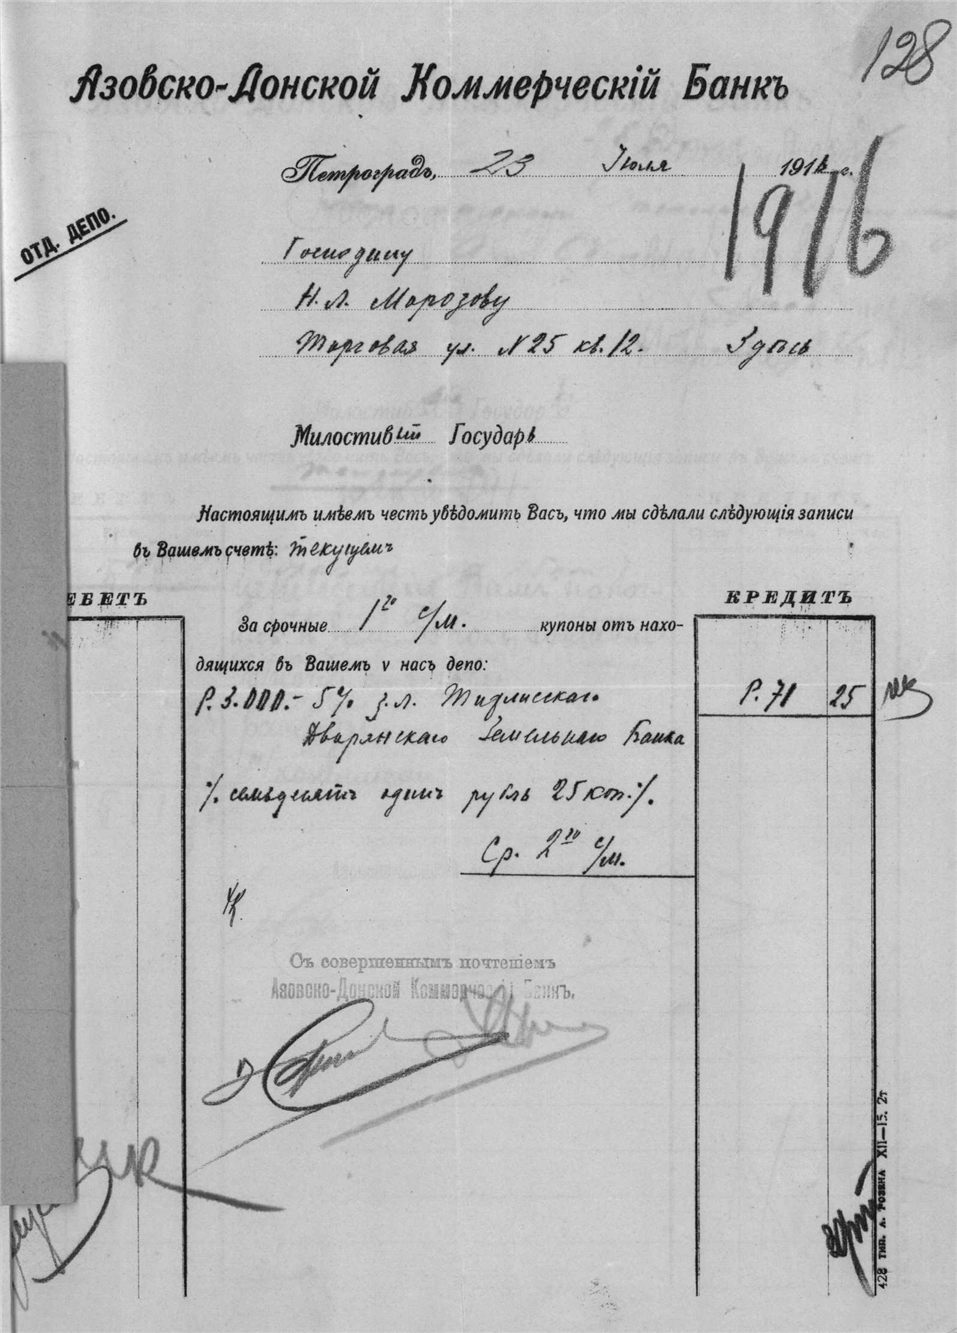 128
Азовско-Донской Коммерческій Банкъ
Петроградъ, 23 Іюля 1916 г.
1916
ОТД. ДЕПО.
Господину
Н. А. Морозову
Торговая ул. N 25 кв. 12. Здѣсь
Милостивый Государь
Настоящимъ имѣемъ честь увѣдомить Васъ, что мы сдѣлали слѣдующія записи
въ Вашемъ счетѣ: текущемъ
ЕБЕТЪ
КРЕДИТЪ
За срочные 1го с/м. купоны отъ нахо-
дящихся въ Вашемъ у насъ депо:
Р. 3.000.- 5% з.л. Тифлисскаго Р. 71 25
Дворянскаго Земельнаго Банка
./. семьдесятъ одинъ рубль 25 коп. ./.
Ср. 2го с/м.
Съ совершеннымъ почтеніемъ
Азовско-Донской Коммерческій Банкъ.
428 ТИП. А. РОЗЕНА XII—15. 2т